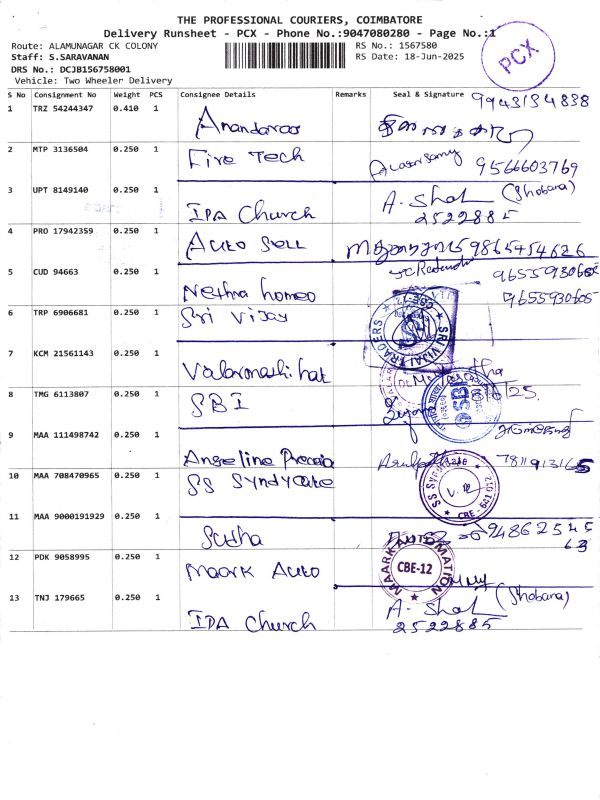 THE PROFESSIONAL COURIERS, COIMBATORE
Delivery Runsheet - PCX - Phone No.:9047080280 - Page No.:1
Route: ALAMUNAGAR CK COLONY
RS No.: 1567580
Staff: S.SARAVANAN
RS Date: 18-Jun-2025
DRS No.: DCJB156758001
Vehicle: Two Wheeler Delivery
PCX
S No Consignment No Weight PCS Consignee Details Remarks Seal & Signature 9943134838
1 TRZ 54244347 0.410 1
2 MTP 3136504 0.250 1 Fire Tech 9566603769
3 UPT 8149140 0.250 1 IPA Church A. Shal (Shobana)
2522885
4 PRO 17942359 0.250 1 Auto Sell 9865454626
5 CUD 94663 0.250 1 Nethra homeo 9655930605
9655930605
6 TRP 6906681 0.250 1 Sri Vijay
SRI VIJAI TRADERS CBE-12
7 KCM 21561143 0.250 1
8 TMG 6113807 0.250 1 SBI
SBI
9 MAA 111498742 0.250 1 Angeline
10 MAA 708470965 0.250 1 SS Syndycate
SS Syndicate CBE - 641 012
11 MAA 9000191929 0.250 1 Sutha 94862545
63
12 PDK 9058995 0.250 1 Maark Auto
MAARK AUTOMATION CBE-12
13 TNJ 179665 0.250 1 IPA Church A. Shal (Shobana)
2522885